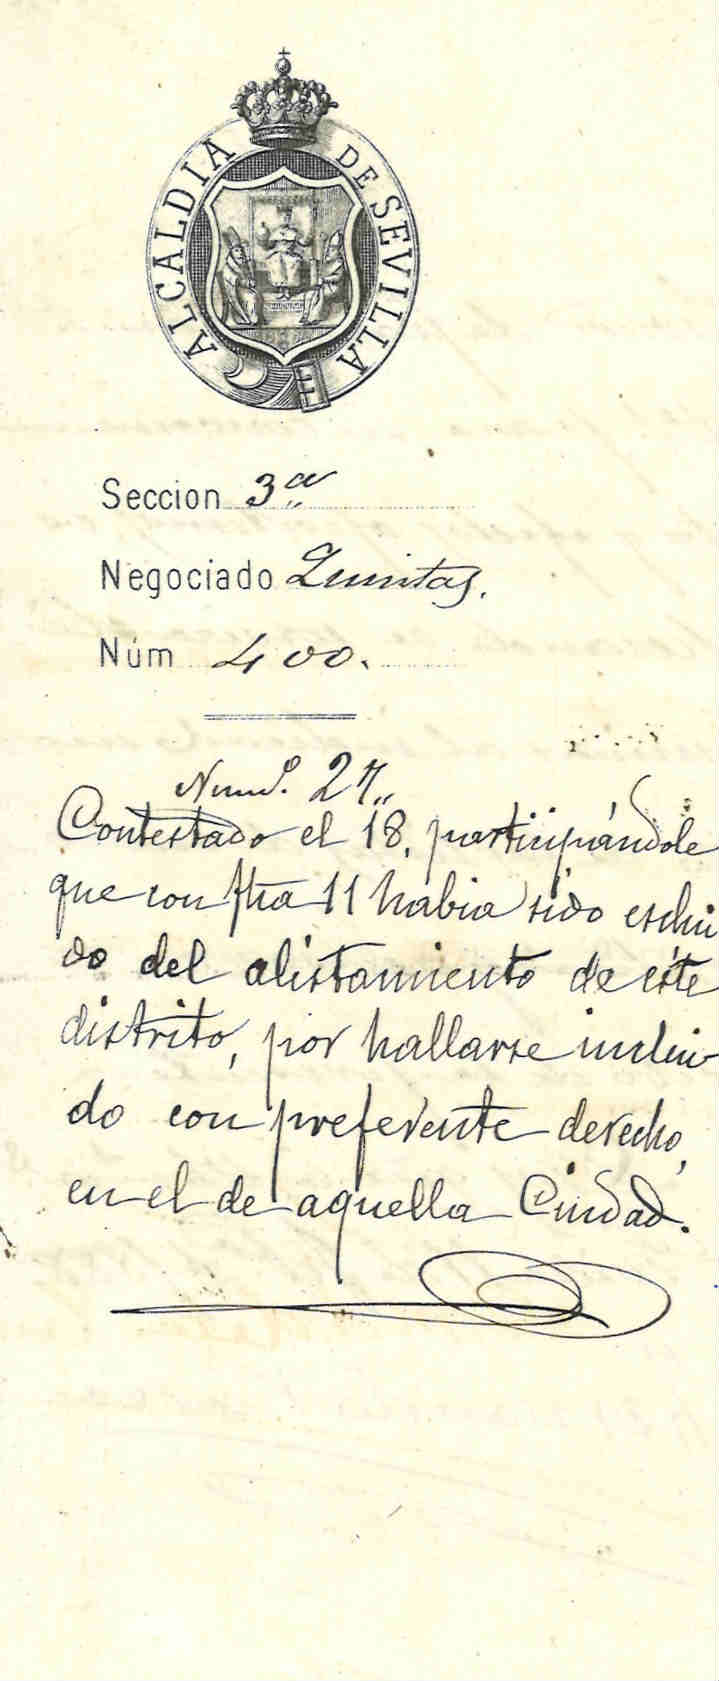 ALCALDIA DE SEVILLA
Seccion 3ª
Negociado Quintas.
Núm 400.
Numº. 27,,
Contestado el 18, participándole
que con fha 11 habia sido esclui
do del alistamiento de este
distrito, por hallarse inclui
do con preferente derecho,
en el de aquella Ciudad.